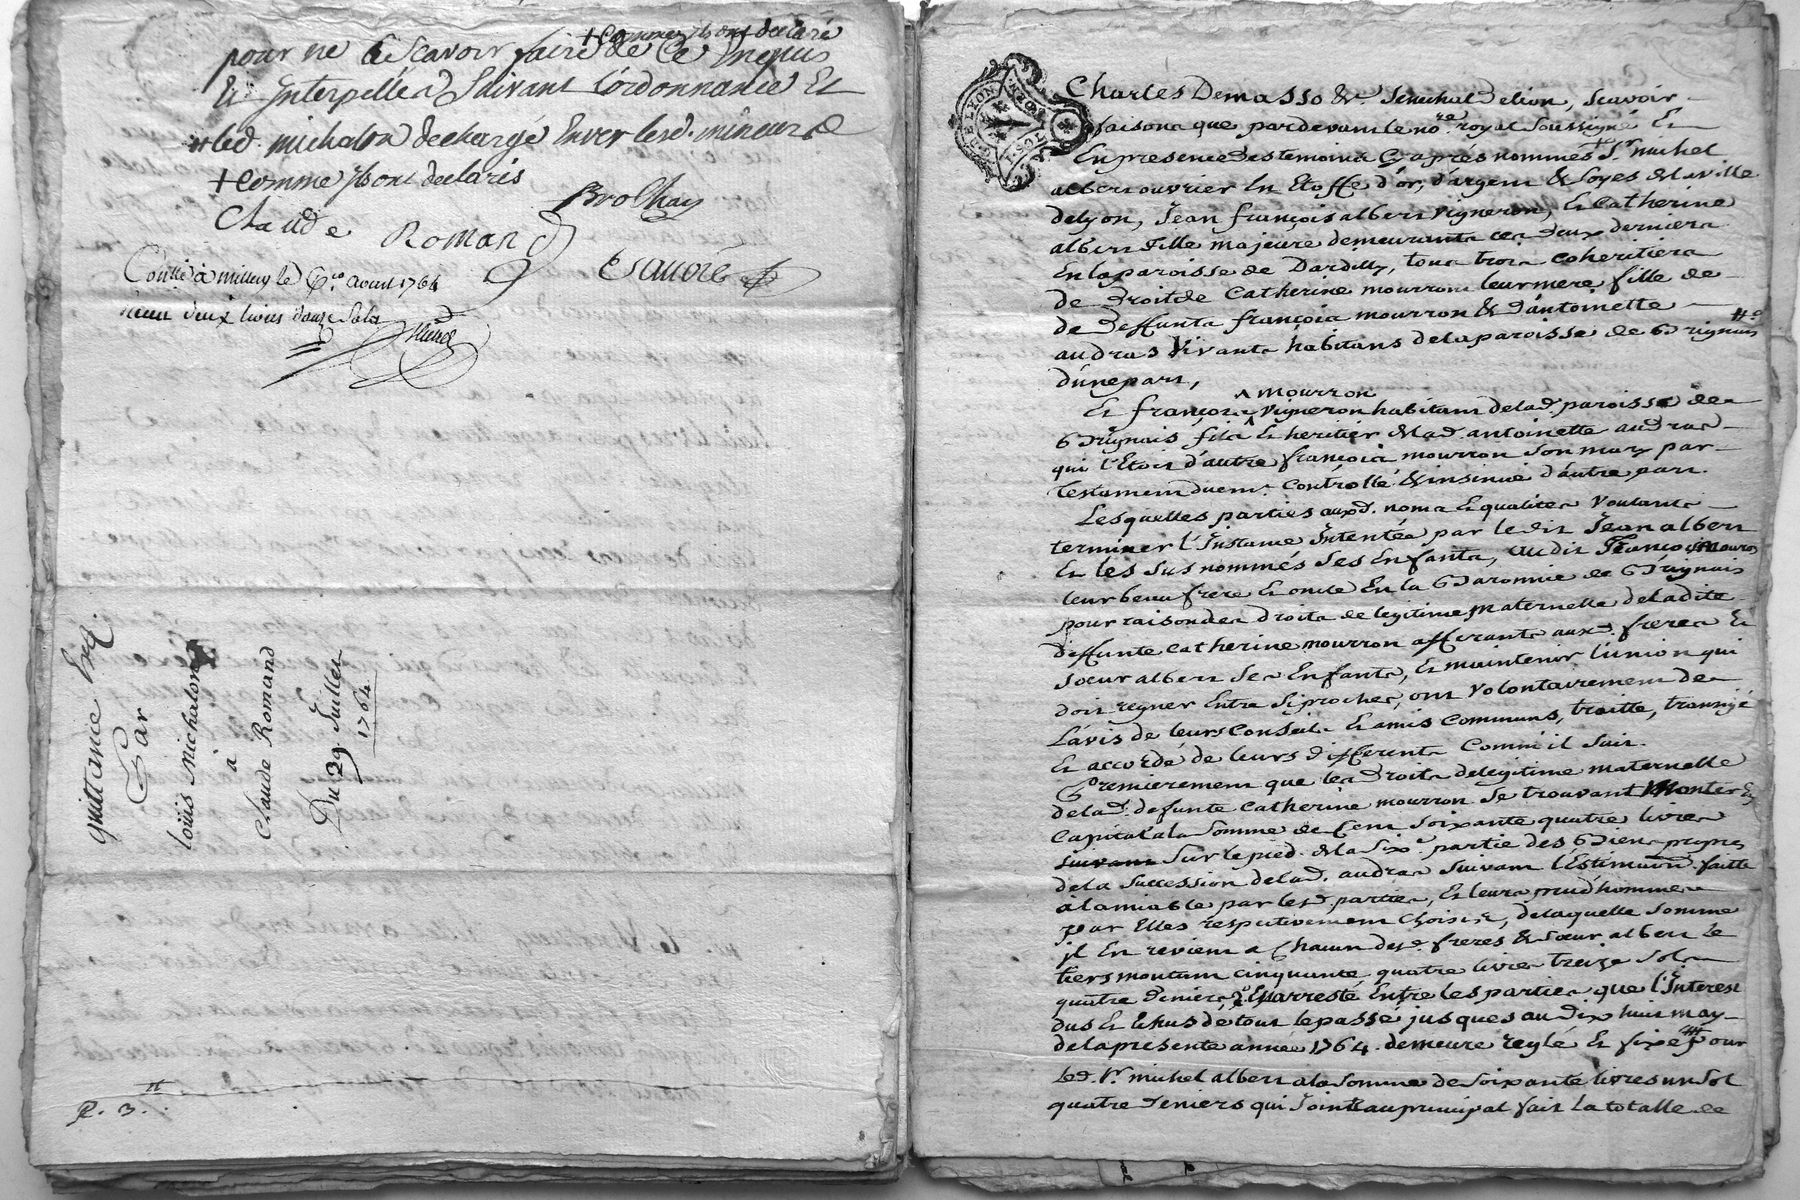 + comme ils ont declaré
pour ne le scavoir faire de ce enquis
Et Interpellés Suivant l'ordonnance Et
# led. michalon dechargé Enver lesd. mineurs
+ comme ils ont declarés
Claude Romand
Brolhay
Esauvré
Con.llé à millery le août 1764
receu deux livres douze sols
quittance
Par
loüis Michalon
à
Claude Romand
Du 29 Juillet
1764
R. 3.#
Charles Demasso &c. Senechal de lion, scavoir
faisons que pardevant le no.re royal soussigné Et
En presence des temoins Cy après nommés + S.r michel
albert ouvrier En Etoffe d'or, d'argent & soyes de la ville
de lyon, Jean françois albert vigneron, Et Catherine
albert fille majeure demeurants ces deux derniers
En la paroisse de Dardilly, tous trois coheritiers
de droit de Catherine mourron leur mere fille de
de deffunts françois mourron & d'antoinette
audras vivants habitans de la paroisse de Brignais #
d'une part,
^ mourron
Et françois ^ vigneron habitant de lad. paroisse de
Brignais fils Et heritier de lad. antoinette audras
qui l'Etoit d'autre françois mourron son mary par
testament duem.t Contrôllé & insinué d'autre part.
Lesquelles parties auxd. noms Et qualités voulants
terminer l'Instance Intentée par ledit Jean albert
Et les sus nommés ses Enfants, audit françois Mouron
leur beau frere Et oncle En la Baronnie de Brignais
pour raison des droits de legitime maternelle de la dite
deffunte catherine mourron afferants auxd. freres Et
soeur albert ses Enfants, Et maintenir l'union qui
doit regner Entre si proches, ont volontairement de
L'avis de leurs Conseils Et amis communs, traitté, transigé
Et accordé de leurs differents Comme il suit.
Premierement que les droits de legitime maternelle
de lad. defunte catherine mourron se trouvant Monter En
Capital a la somme de Cent soixante quatre livres
suivant sur le pied de la six.e partie des Biens propres
de la succession de lad. audras suivant l'Estimation faitte
à l'amiable par lesd. parties, Et leurs prud'hommes
par Elles respectivement choisis, de laquelle somme
il En revient a chacun desd. freres & soeur albert le
tiers montant cinquante quatre livres treize sols
quatre deniers, Et arresté Entre les parties que l'Interest
dus Et Echus de tout le passé jusques au dix huit may
de la presente année 1764. demeure reglé Et fixé # Pour
led. S.r michel albert a la somme de soixante livres un sol
quatre deniers qui Jointe au principal fait la totalle de